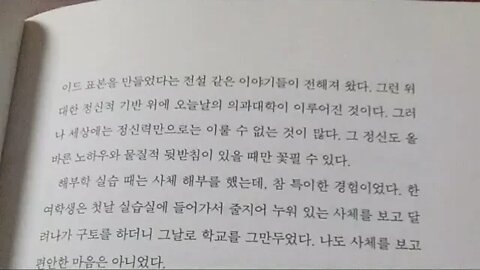 이드 표본을 만들었다는 전설 같은 이야기들이 전해져 왔다. 그런 위
대한 정신적 기반 위에 오늘날의 의과대학이 이루어진 것이다. 그러
나 세상에는 정신력만으로는 이룰 수 없는 것이 많다. 그 정신도 올
바른 노하우와 물질적 뒷받침이 있을 때만 꽃필 수 있다.
해부학 실습 때는 사체 해부를 했는데, 참 특이한 경험이었다. 한
여학생은 첫날 실습실에 들어가서 줄지어 누워 있는 사체를 보고 달
려나가 구토를 하더니 그날로 학교를 그만두었다. 나도 사체를 보고
편안한 마음은 아니었다.